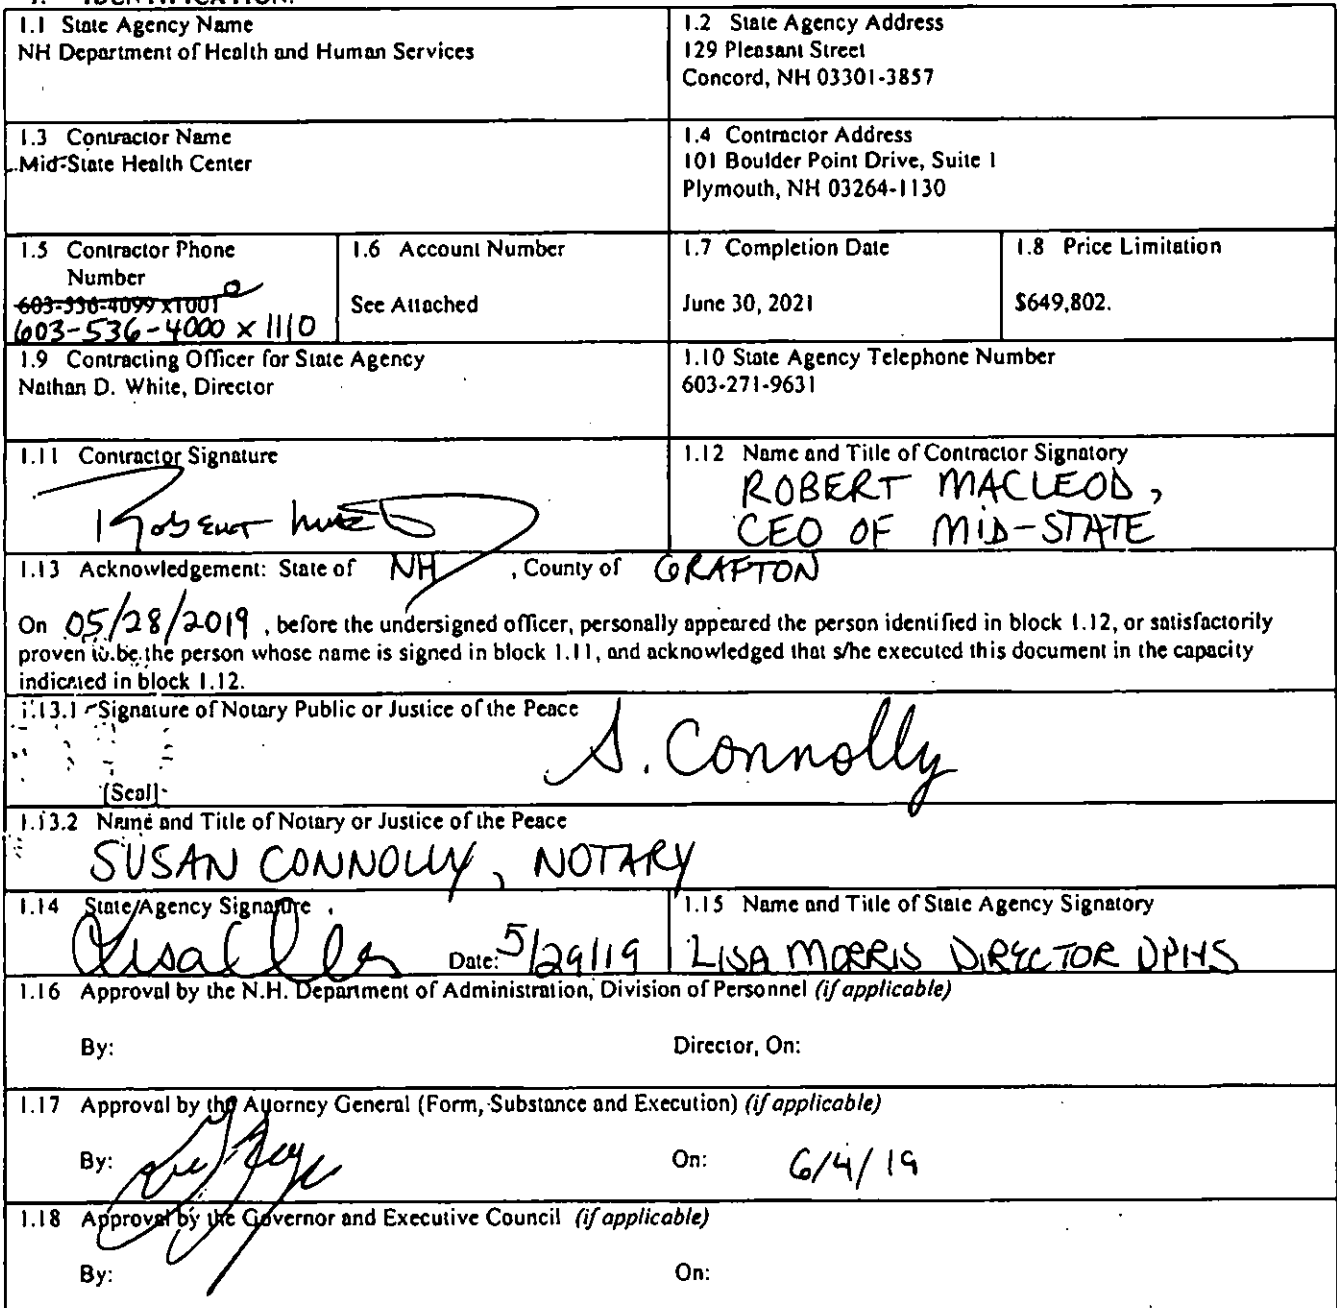 1. IDENTIFICATION.
1.1 State Agency Name
NH Department of Health and Human Services
1.2 State Agency Address
129 Pleasant Street
Concord, NH 03301-3857
1.3 Contractor Name
Mid-State Health Center
1.4 Contractor Address
101 Boulder Point Drive, Suite 1
Plymouth, NH 03264-1130
1.5 Contractor Phone
Number
603-536-4099 x1001
603-536-4000 x 1110
1.6 Account Number
See Attached
1.7 Completion Date
June 30, 2021
1.8 Price Limitation
$649,802.
1.9 Contracting Officer for State Agency
Nathan D. White, Director
1.10 State Agency Telephone Number
603-271-9631
1.11 Contractor Signature
Robert
1.12 Name and Title of Contractor Signatory
ROBERT MACLEOD,
CEO OF MID-STATE
1.13 Acknowledgement: State of NH , County of GRAFTON
On 05/28/2019 , before the undersigned officer, personally appeared the person identified in block 1.12, or satisfactorily
proven to be the person whose name is signed in block 1.11, and acknowledged that s/he executed this document in the capacity
indicated in block 1.12.
1.13.1 Signature of Notary Public or Justice of the Peace
S. Connolly
[Seal]
1.13.2 Name and Title of Notary or Justice of the Peace
SUSAN CONNOLLY, NOTARY
1.14 State Agency Signature
Lisa Date: 5/29/19
1.15 Name and Title of State Agency Signatory
LISA MORRIS DIRECTOR DPHS
1.16 Approval by the N.H. Department of Administration, Division of Personnel (if applicable)
By: Director, On:
1.17 Approval by the Attorney General (Form, Substance and Execution) (if applicable)
By: On: 6/4/19
1.18 Approval by the Governor and Executive Council (if applicable)
By: On: